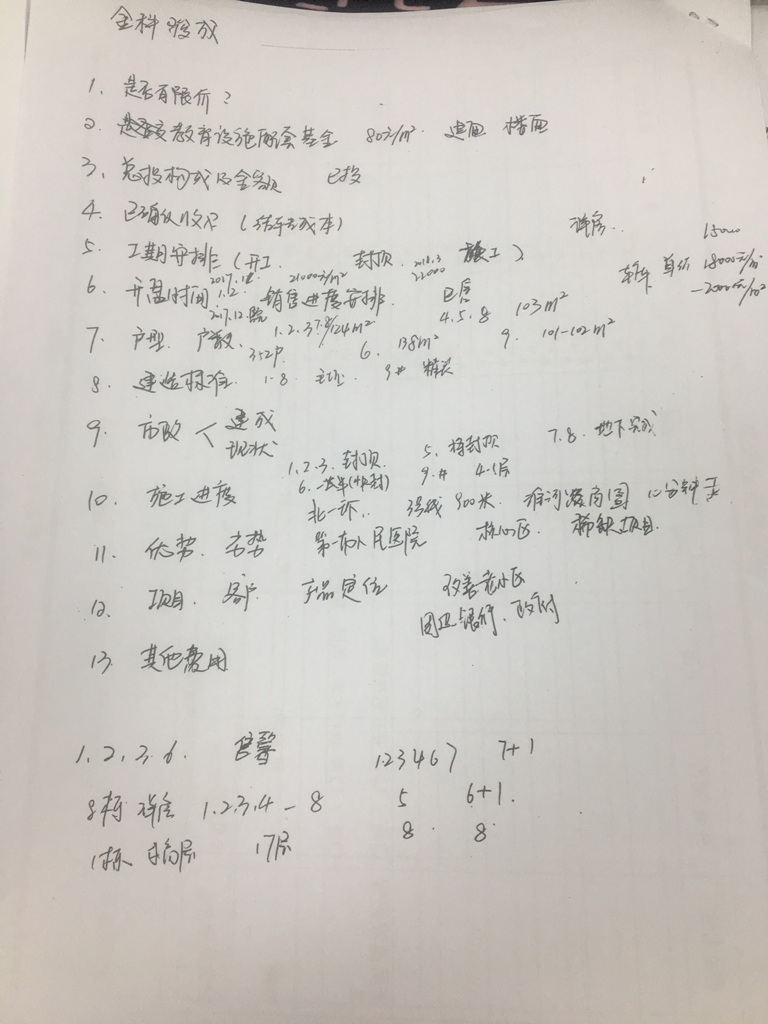 金科
1. 是否有限价？
2. 是否交教育设施配套基金 80元/m². 迎面 楷面
3. 总投构成及金额 已投
4. 已确认收入（结转成本）
洋房.. 15000
5. 工期安排（开工 封顶 2018.3 施工）
单价 18000元/m² -2000元/m²
2017.12 21000元/m² 22000
6. 开盘时间 1.2 销售进度安排
2017.12 4.5.8 103m²
7. 户型 户数 1.2.3.7 124m² 6. 138m² 9. 101-102m²
352户
8. 建造标准. 1-8 毛坯 9# 精装
9. 市政 建成 现状
1.2.3. 封顶 5. 将封顶 7.8. 地下完成
10. 施工进度 9.# 4-5层
北一环.. 3号线 900米. 10分钟
11. 优势. 劣势 第一人民医院 核心区 稀缺项目.
12. 项目. 客户 产品定位 改善老小区
银行. 政府
13. 其他费用
1.2.3.6. 123467 7+1
8栋 洋房 1.2.3.4-8 5 6+1.
1栋 小高层 17层 8 8